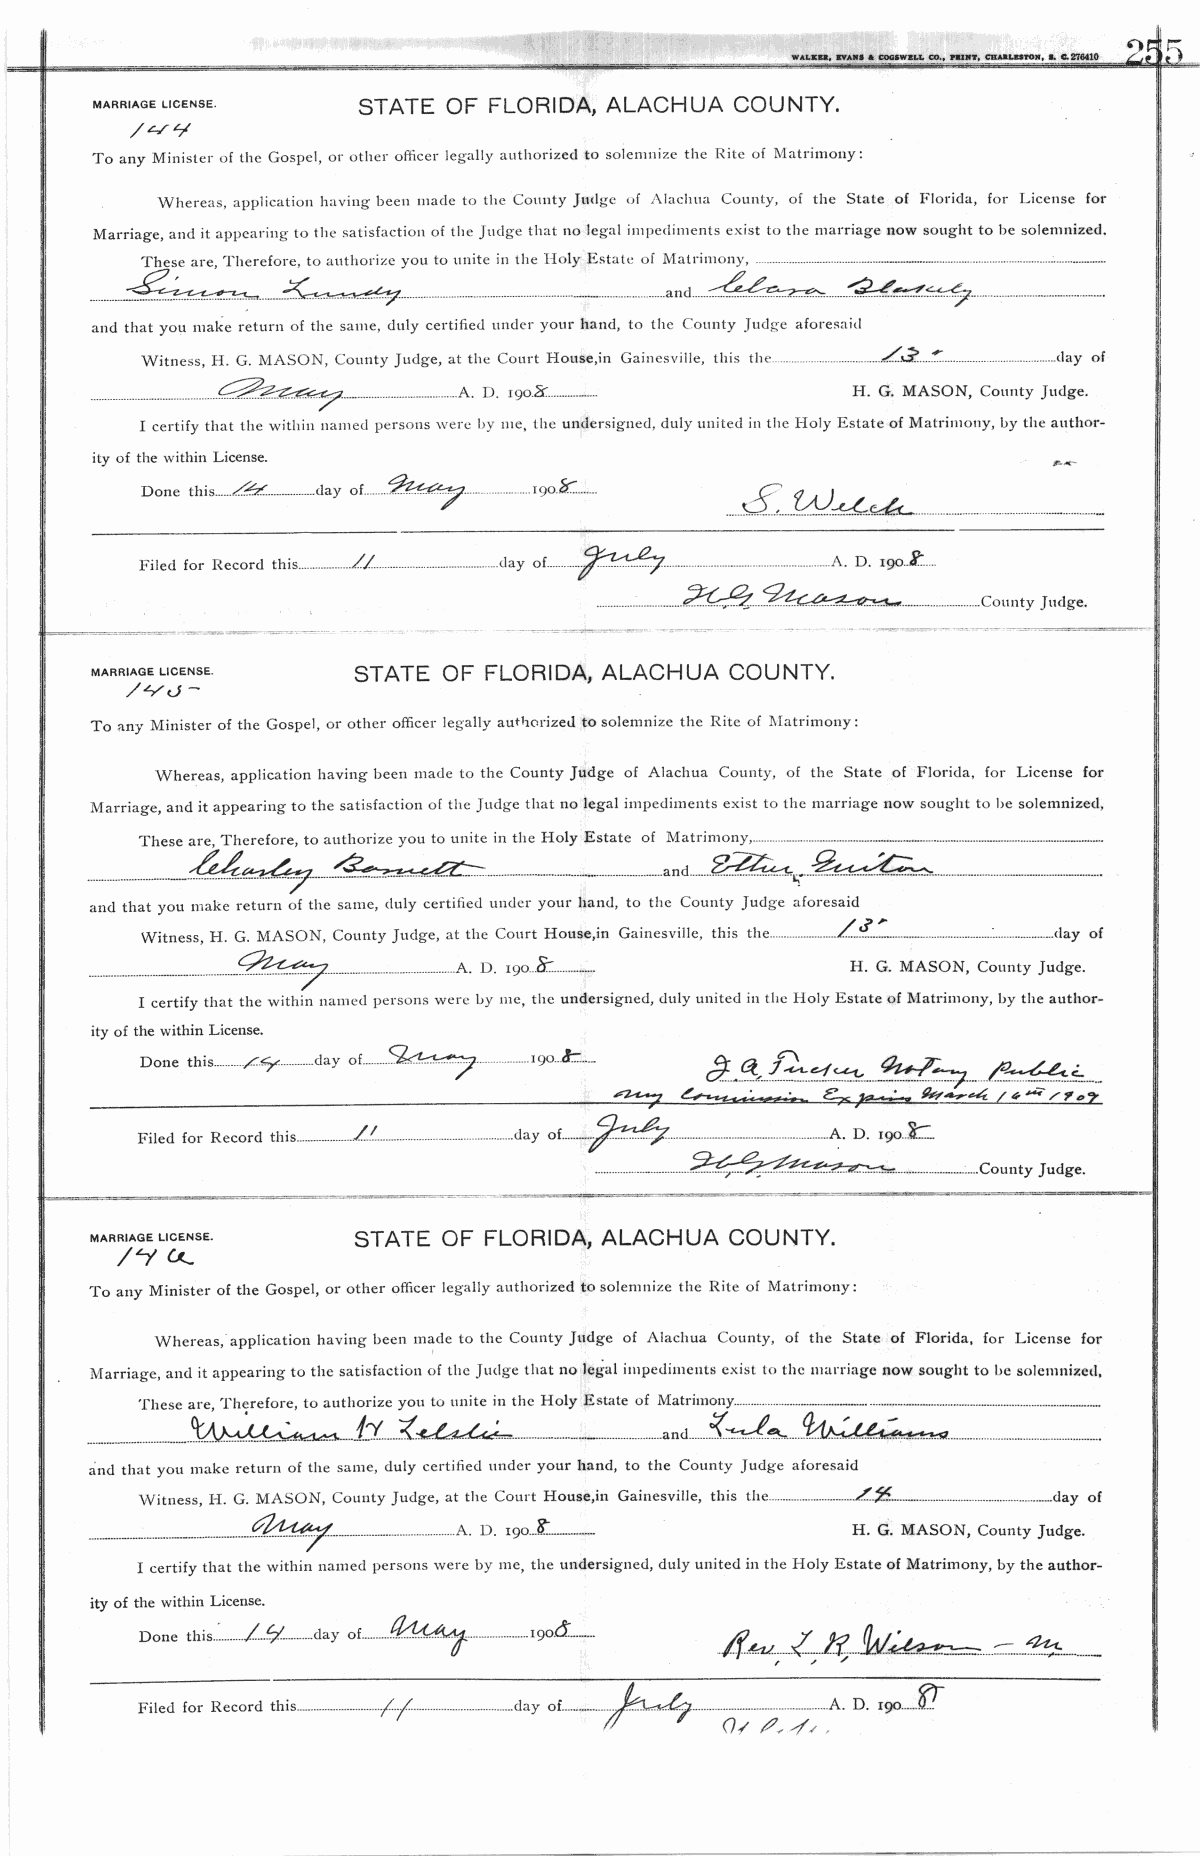 WALKER, EVANS & COGSWELL CO., PRINT, CHARLESTON, S. C. 276410 255
MARRIAGE LICENSE. STATE OF FLORIDA, ALACHUA COUNTY.
144
To any Minister of the Gospel, or other officer legally authorized to solemnize the Rite of Matrimony:
Whereas, application having been made to the County Judge of Alachua County, of the State of Florida, for License for
Marriage, and it appearing to the satisfaction of the Judge that no legal impediments exist to the marriage now sought to be solemnized.
These are, Therefore, to authorize you to unite in the Holy Estate of Matrimony,
Simon Lundy and Clara Blakely
and that you make return of the same, duly certified under your hand, to the County Judge aforesaid
Witness, H. G. MASON, County Judge, at the Court House, in Gainesville, this the 13 day of
May A. D. 1908 H. G. MASON, County Judge.
I certify that the within named persons were by me, the undersigned, duly united in the Holy Estate of Matrimony, by the author-
ity of the within License.
Done this 14 day of May 1908
S. Welch
Filed for Record this 11 day of July A. D. 1908
H.G. Mason County Judge.
MARRIAGE LICENSE. STATE OF FLORIDA, ALACHUA COUNTY.
145
To any Minister of the Gospel, or other officer legally authorized to solemnize the Rite of Matrimony:
Whereas, application having been made to the County Judge of Alachua County, of the State of Florida, for License for
Marriage, and it appearing to the satisfaction of the Judge that no legal impediments exist to the marriage now sought to be solemnized,
These are, Therefore, to authorize you to unite in the Holy Estate of Matrimony,
Charley Barnett and Guiton
and that you make return of the same, duly certified under your hand, to the County Judge aforesaid
Witness, H. G. MASON, County Judge, at the Court House, in Gainesville, this the 13 day of
May A. D. 1908 H. G. MASON, County Judge.
I certify that the within named persons were by me, the undersigned, duly united in the Holy Estate of Matrimony, by the author-
ity of the within License.
Done this 14 day of May 1908
J. A. Tucker Notary Public
My Commission Expires March 16th 1909
Filed for Record this 11 day of July A. D. 1908
H.G. Mason County Judge.
MARRIAGE LICENSE. STATE OF FLORIDA, ALACHUA COUNTY.
146
To any Minister of the Gospel, or other officer legally authorized to solemnize the Rite of Matrimony:
Whereas, application having been made to the County Judge of Alachua County, of the State of Florida, for License for
Marriage, and it appearing to the satisfaction of the Judge that no legal impediments exist to the marriage now sought to be solemnized,
These are, Therefore, to authorize you to unite in the Holy Estate of Matrimony
William H Leslie and Lula Williams
and that you make return of the same, duly certified under your hand, to the County Judge aforesaid
Witness, H. G. MASON, County Judge, at the Court House, in Gainesville, this the 14 day of
May A. D. 1908 H. G. MASON, County Judge.
I certify that the within named persons were by me, the undersigned, duly united in the Holy Estate of Matrimony, by the author-
ity of the within License.
Done this 14 day of May 1908
Rev. L. R. Wilson - M.
Filed for Record this 11 day of July A. D. 1908